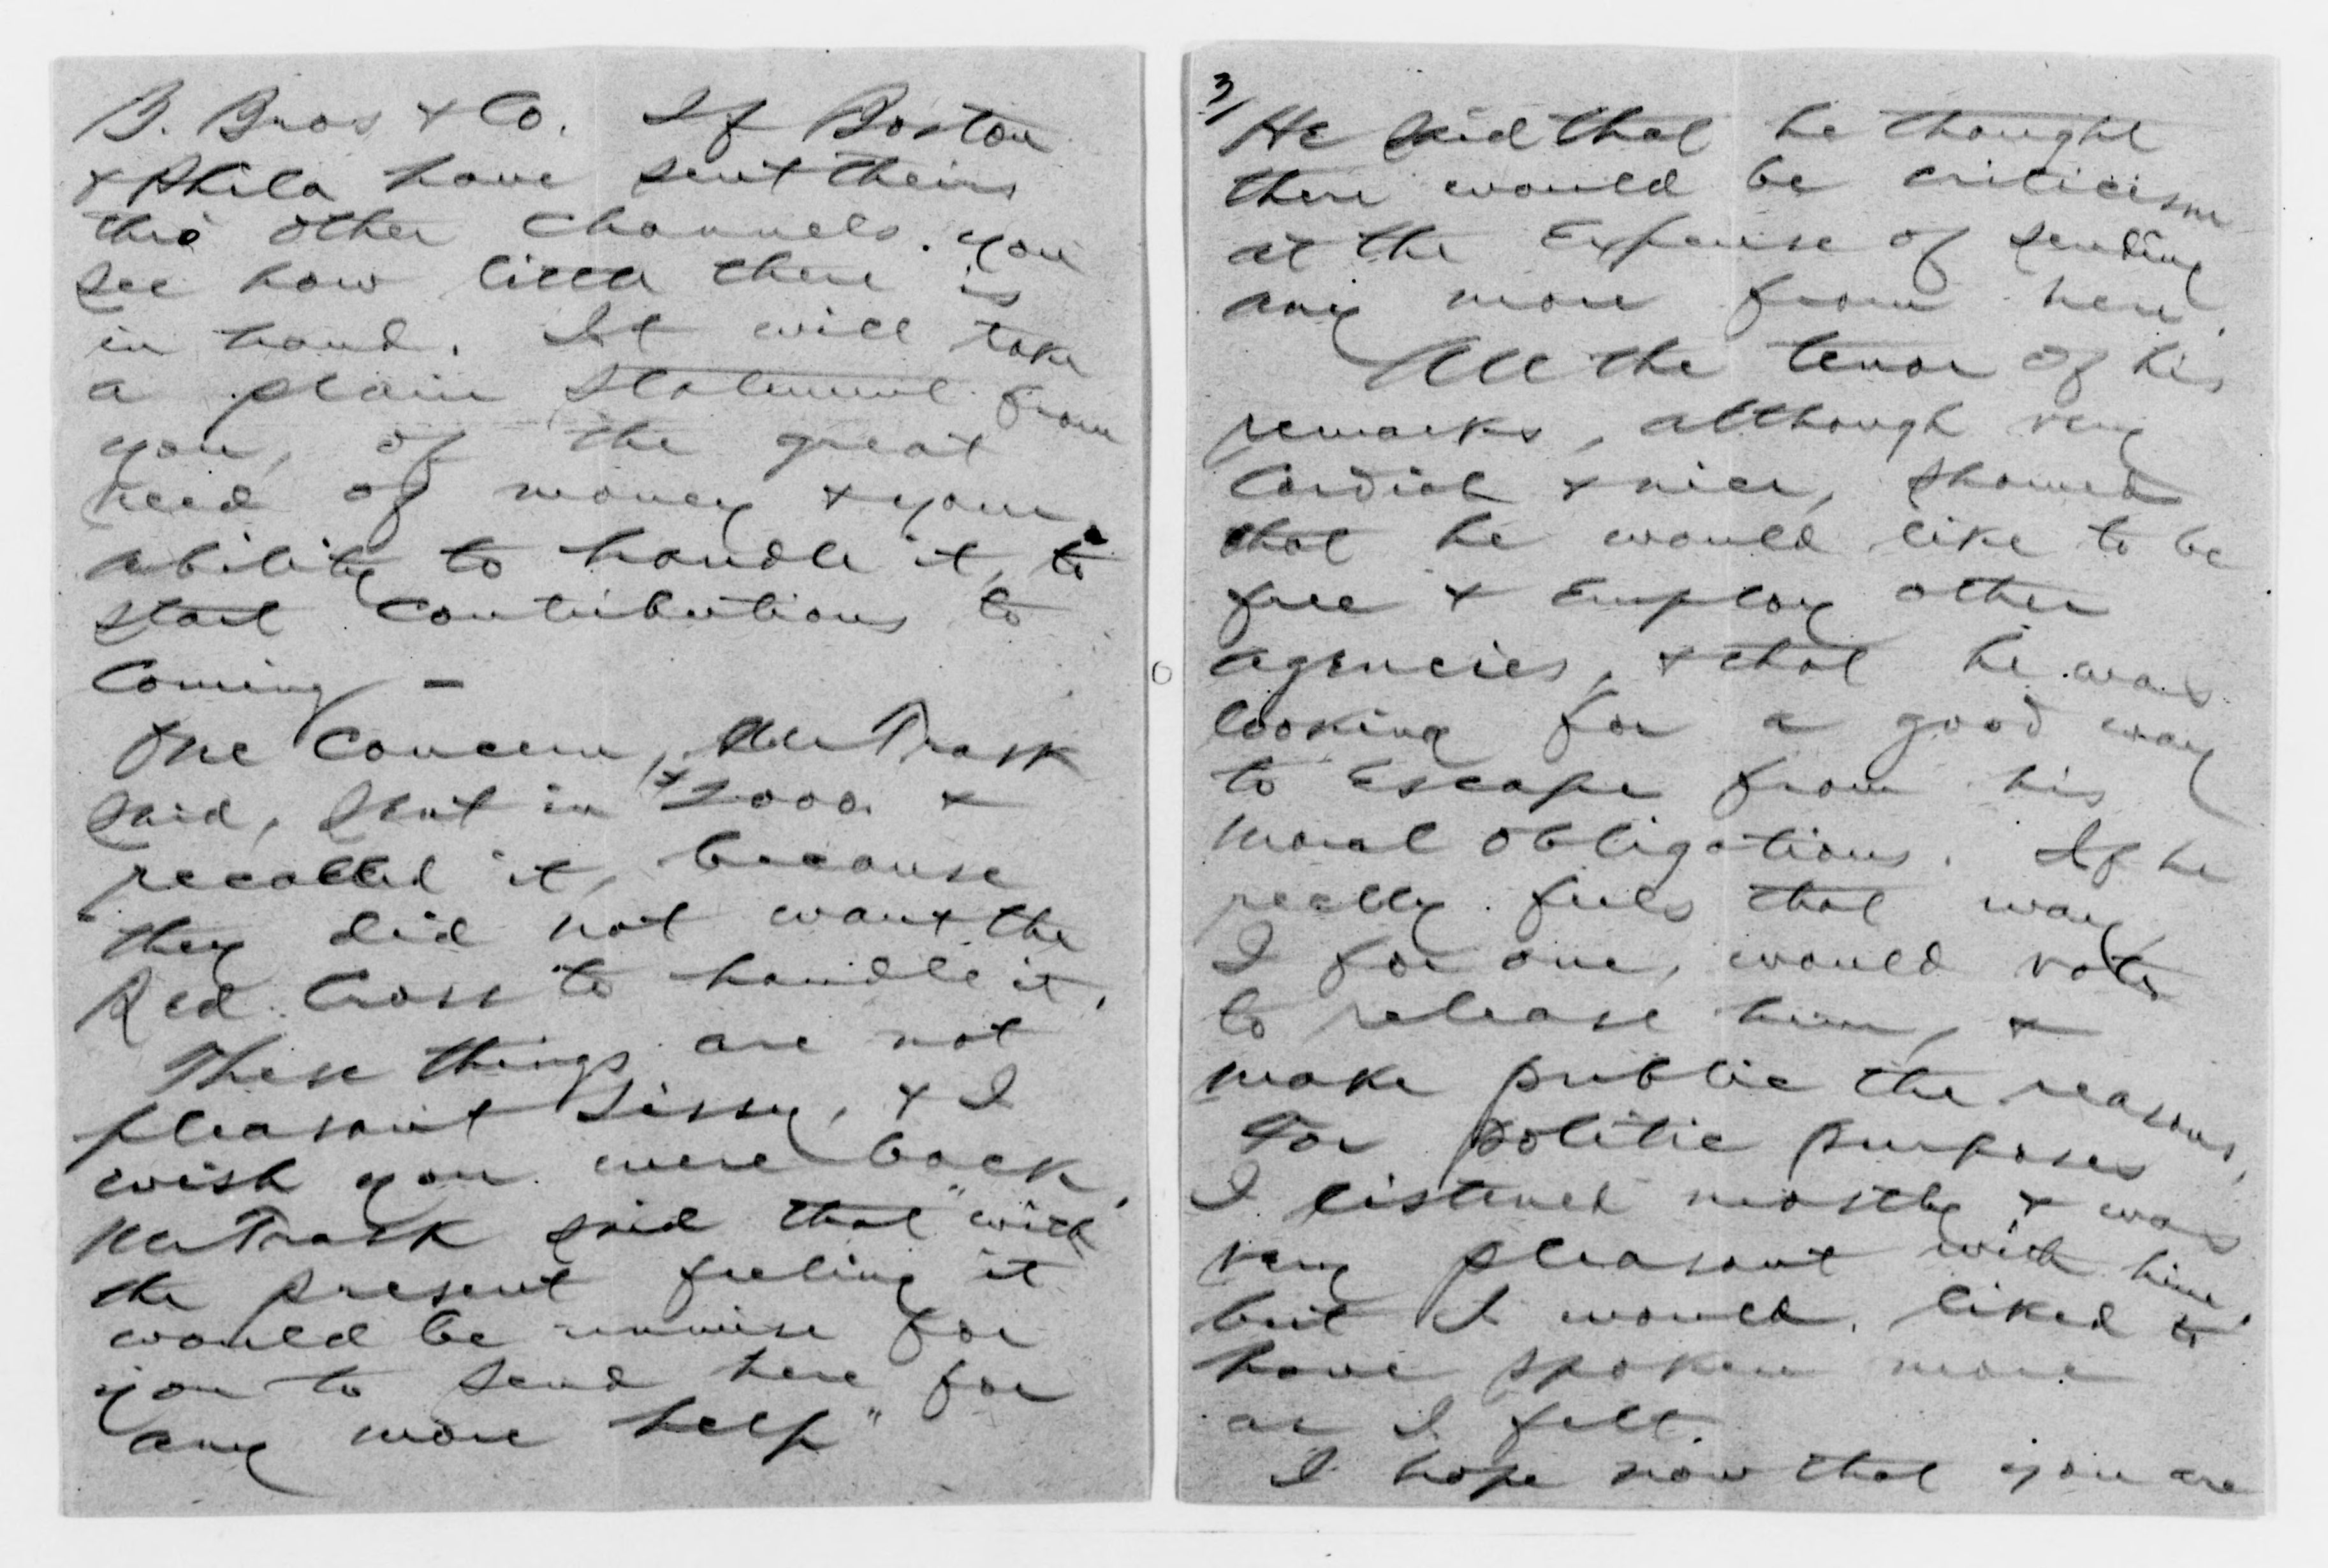 B. Bros & Co. If Boston
& Phila have sent theirs
thro other channels. you
see how little there is
in hand. It will take
a plain statement from
you, of the great
need of money & your
ability to handle it, to
start contributions to
coming –
One concern, Mr Trask
said, sent in $2000. &
recalled it, because
they did not want the
Red Cross to handle it.
These things are not
pleasant Sissy, & I
wish you were back.
Mr Trask said that "with
the present feeling it
would be unwise for
you to send here for
any more help"
3/
He said that he thought
there would be criticism
at the Expense of sending
any more from here.
All the tenor of his
remarks, although very
cordial & nice, showed
that he would like to be
free & Employ other
agencies, & that he was
looking for a good way
to Escape from his
moral obligations. If he
really feels that way
I for one, would vote
to release him, &
make public the reasons.
For politic purposes,
I listened mostly & was
very pleasant with him,
but I would liked to
have spoken more
as I felt.
I hope now that you are